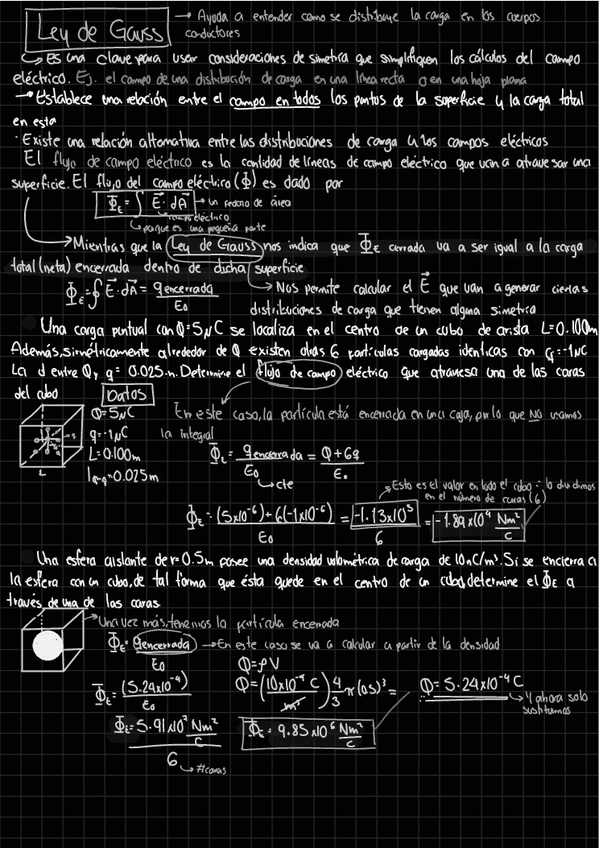 Ley de Gauss → Ayuda a entender como se distribuye la carga en los cuerpos
conductores
↳ Es una clave para usar consideraciones de simetría que simplifiquen los cálculos del campo
eléctrico. Ej. el campo de una distribución de carga en una línea recta o en una hoja plana
→ Establece una relación entre el campo en todos los puntos de la superficie y la carga total
en esta
· Existe una relación alternativa entre las distribuciones de carga y los campos eléctricos
El flujo de campo eléctrico es la cantidad de líneas de campo eléctrico que van a atravesar una
superficie. El flujo del campo eléctrico (Φ) es dado por
Φ_E = ∫ E⃗ · dA⃗ → un pedazo de área
campo eléctrico
porque es una pequeña parte
→ Mientras que la Ley de Gauss nos indica que Φ_E cerrada va a ser igual a la carga
total (neta) encerrada dentro de dicha superficie
Φ_E = ∮ E⃗ · dA⃗ = q encerrada / ε₀
→ Nos permite calcular el E⃗ que van a generar ciertas
distribuciones de carga que tienen alguna simetría
Una carga puntual con Q = 5μC se localiza en el centro de un cubo de arista L = 0.100m
Además, simétricamente alrededor de Q existen otras 6 partículas cargadas identicas con q = -1μC
La d entre Q y q = 0.025 m. Determine el flujo de campo eléctrico que atraviesa una de las caras
del cubo
Datos
Q = 5μC
q = -1μC
L = 0.100m
l Q-q = 0.025m
L
En este caso, la partícula está encerrada en una caja, por lo que NO usamos
la integral
Φ_E = q encerrada / ε₀ = Q + 6q / ε₀
↳ cte
Esto es el valor en todo el cubo ∴ lo dividimos
en el número de caras (6)
Φ_E = (5x10⁻⁶) + 6(-1x10⁻⁶) / ε₀ = -1.13x10⁵ / 6 = -1.89x10⁴ Nm²/C
Una esfera aislante de r = 0.5m posee una densidad volumétrica de carga de 10nC/m³. Si se encierra a
la esfera con un cubo, de tal forma que ésta quede en el centro de un cubo, determine el Φ_E a
través de una de las caras
→ Una vez más, tenemos la partícula encerrada
Φ_E = q encerrada / ε₀ → En este caso se va a calcular a partir de la densidad
Q = ρV
Φ_E = (5.24x10⁻⁴) / ε₀
Q = (10x10⁻⁴ C / m³) 4/3 π (0.5)³ =
Q = 5.24x10⁻⁴ C
↳ Y ahora solo
sustituimos
Φ_E = 5.91x10⁷ Nm²/C / 6
↳ # caras
Φ_E = 9.85x10⁶ Nm²/C